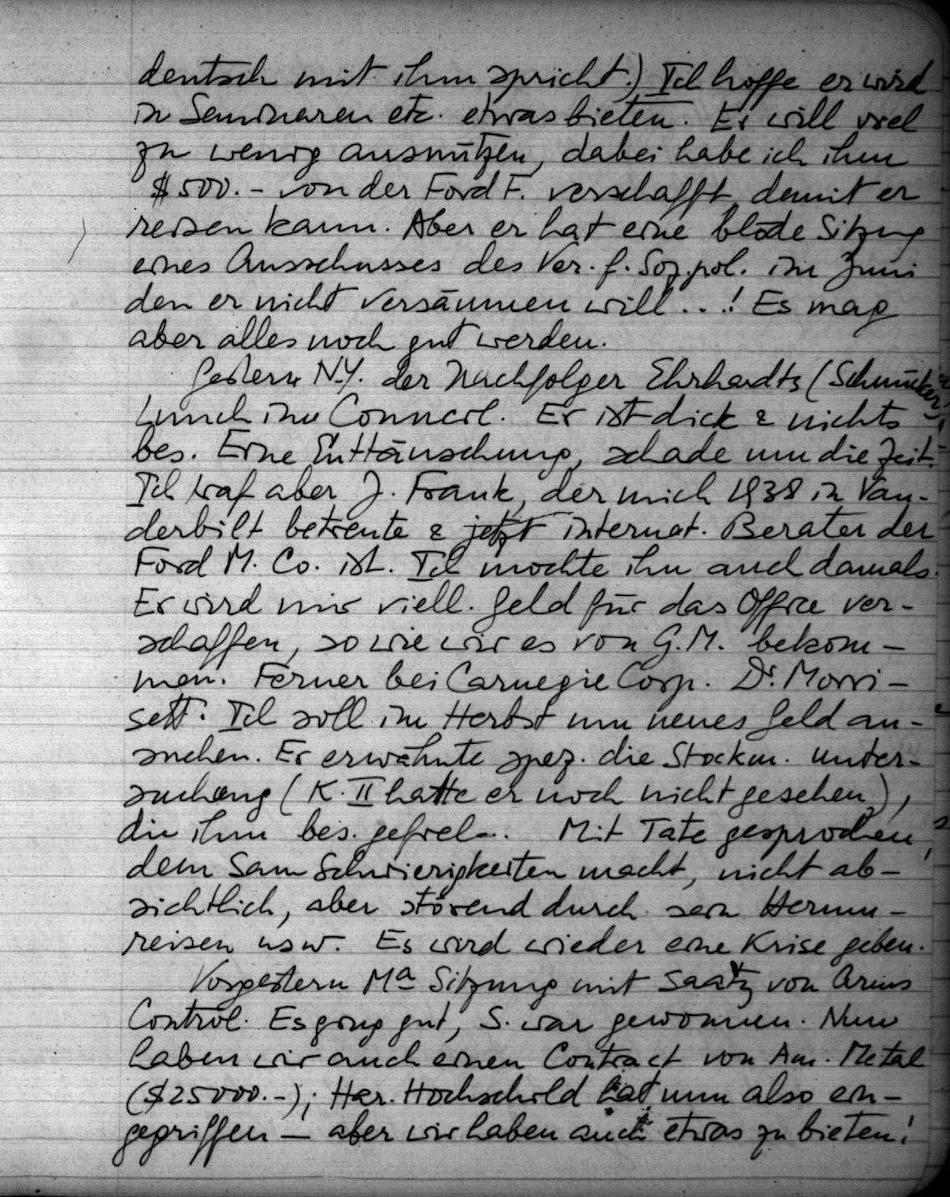 deutsch mit ihm spricht.) Ich hoffe er wird
in Seminaren etc. etwas bieten. Er will viel
zu wenig ausnützen, dabei habe ich ihm
$500.- von der Ford F. verschafft damit er
reisen kann. Aber er hat eine blöde Sitzung
eines Ausschusses des Ver. f. Soz.pol. im Juni
den er nicht versäumen will...! Es mag
aber alles noch gut werden.
Gestern N.Y. der Nachfolger Ehrhardts
Lunch im Council. Er ist dick & nichts
bes. Eine Enttäuschung, schade um die Zeit.
Ich traf aber J. Frank, der mich 1938 in Van-
derbilt betreute & jetzt internat. Berater der
Ford M. Co. ist. Ich mochte ihn auch damals.
Er wird mir viell. Geld für das Office ver-
schaffen, so wie wir es von G.M. bekom-
men. Ferner bei Carnegie Corp. Dr. Morri-
sett. Ich soll im Herbst um neues Geld an-
suchen. Er erwähnte spez. die Stockm. unter-
suchung (K. II hatte er noch nicht gesehen),
die ihm bes. gefiel.. Mit Tate gesprochen,
dem Sam Schwierigkeiten macht, nicht ab-
sichtlich, aber störend durch sein Herum-
reisen usw. Es wird wieder eine Krise geben.
Vorgestern Ma Sitzung mit Saaty von Arms
Control. Es ging gut, S. war gewonnen. Nun
haben wir auch einen Contract von Am. Metal
($25000.-); Har. Hochschild hat nun also ein-
gegriffen — aber wir haben auch etwas zu bieten!